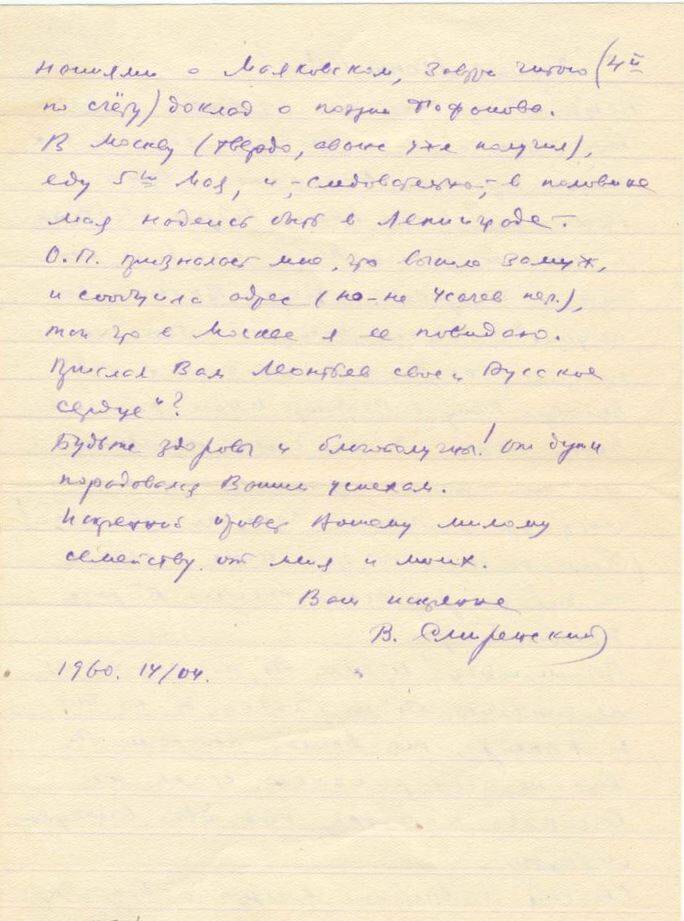 о Маяковском, завтра читаю (4й
по счёту) доклад о поэзии Фофанова.
В Москву (твердо, аванс уже получил),
еду 5го мая, и, – следовательно, – в половине
мая надеюсь быть в Ленинграде.
О.П. призналась мне, что вышла замуж,
и сообщила адрес (пер.),
так что в Москве я ее повидаю.
Прислал Вам Леонтьев свое „Русское
сердце"?
Будьте здоровы и благополучны! От души
порадовался Вашим успехам.
Искренний привет Вашему милому
семейству от меня и моих.
Ваш искренне
В. Смиренский
1960. 14/04.